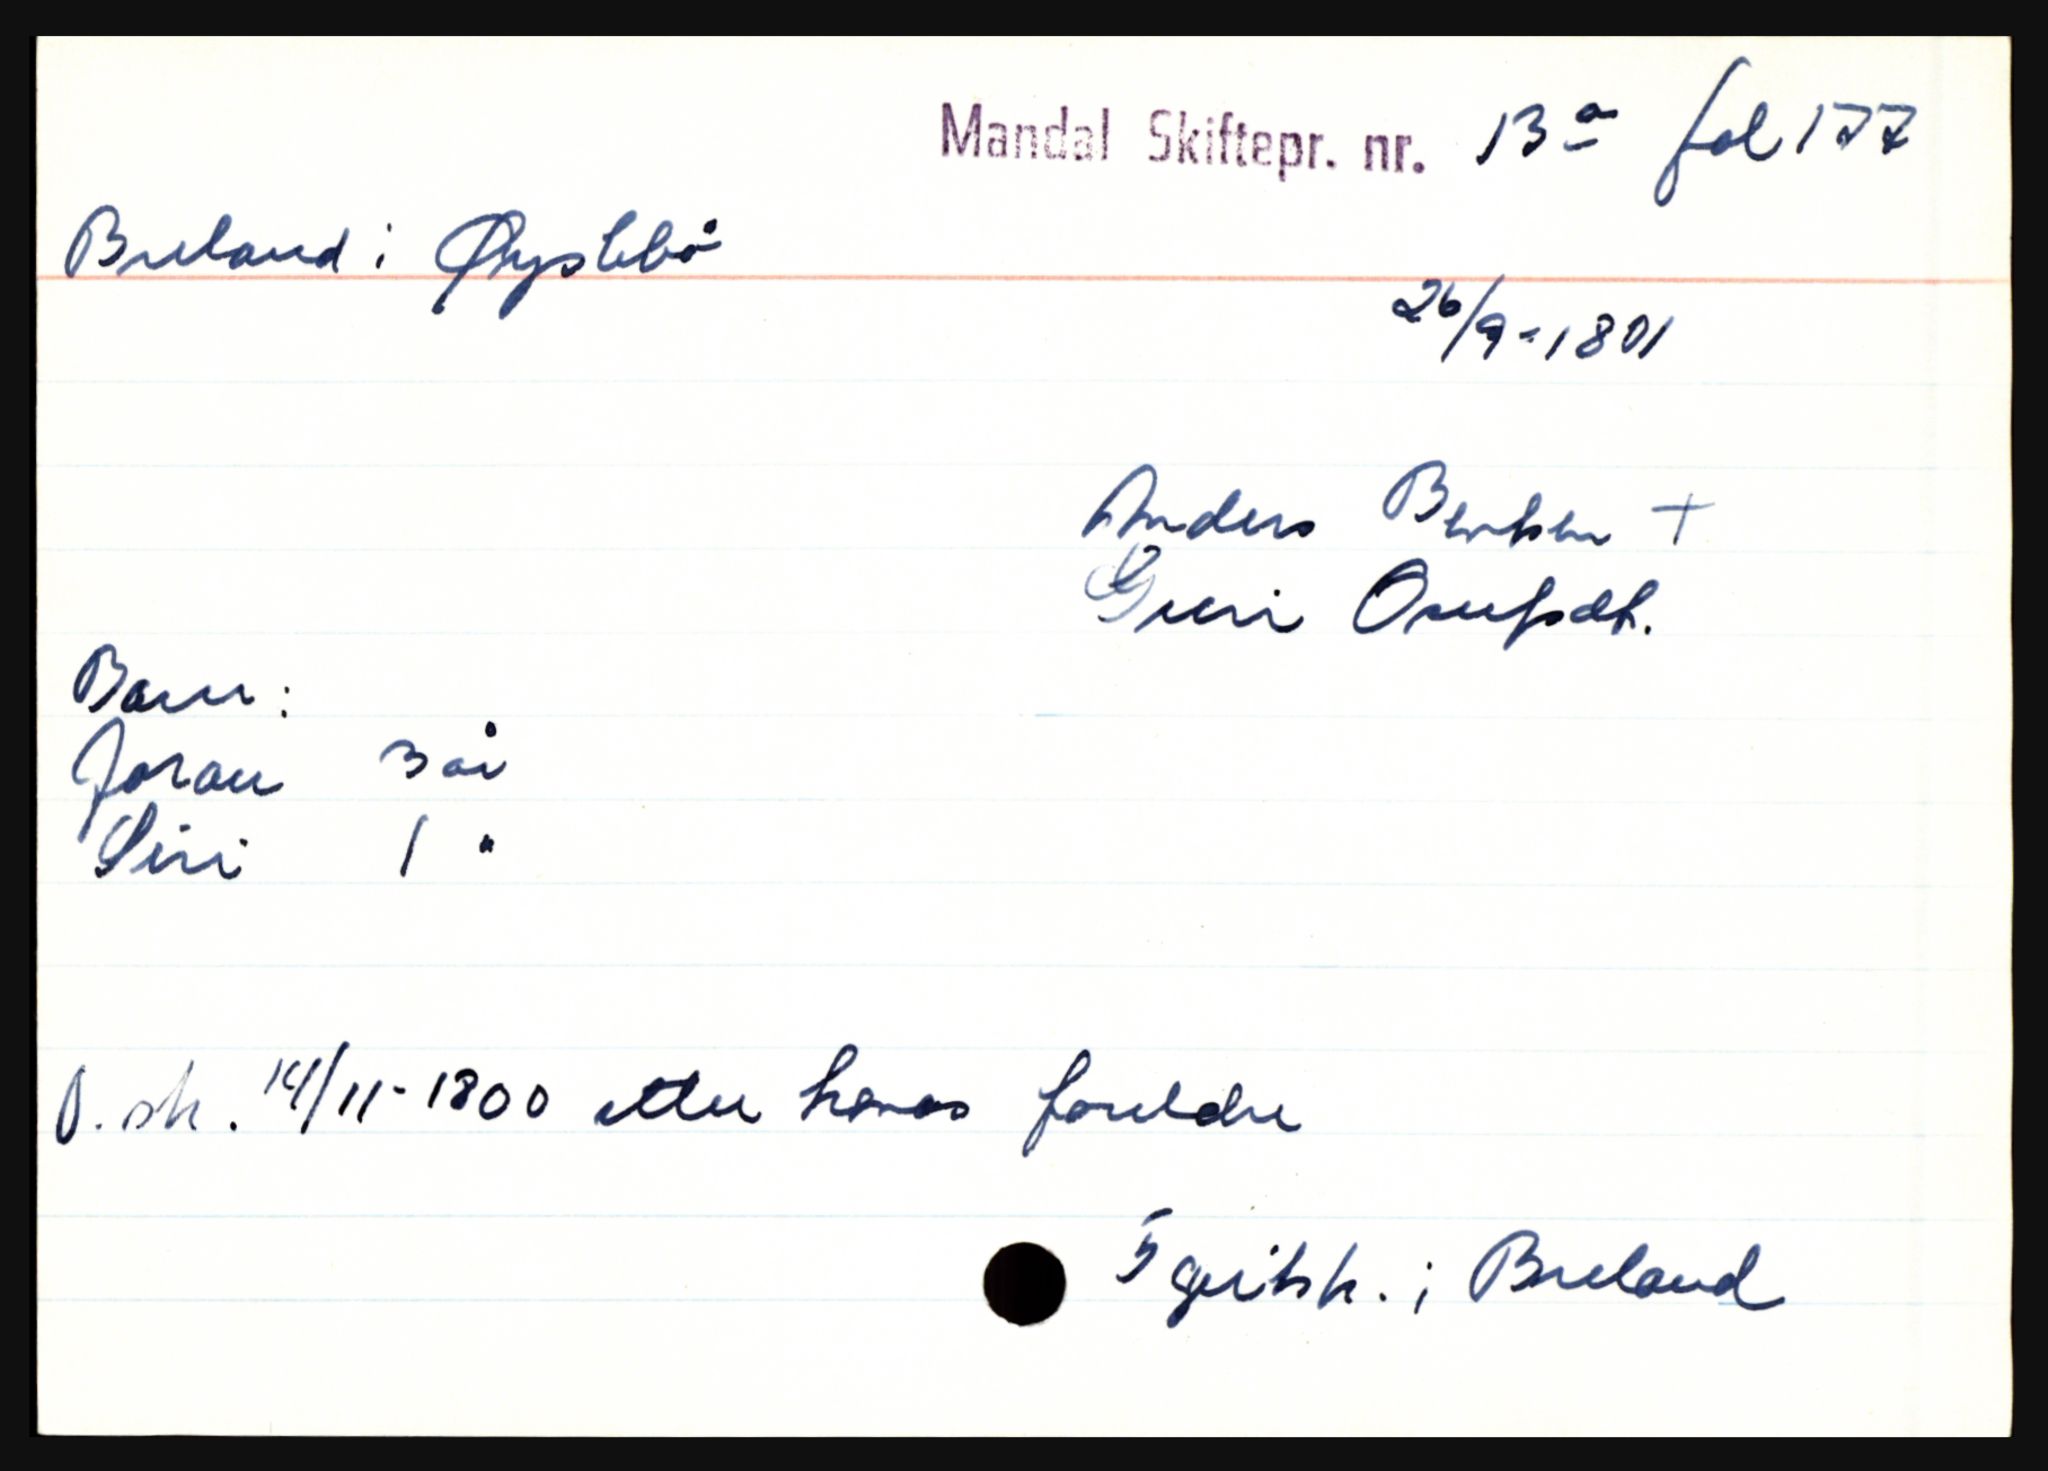 Mandal Skiftepr. nr. 13a fol 177
Breland i Øyslebö
26/9-1801
Anders Bentsen +
Guri Osufsdt.
Barn:
Joran 3 år
Siri 1 "
O. sk. 14/11-1800 etter hennes foreldre
5 gritsk. i Breland